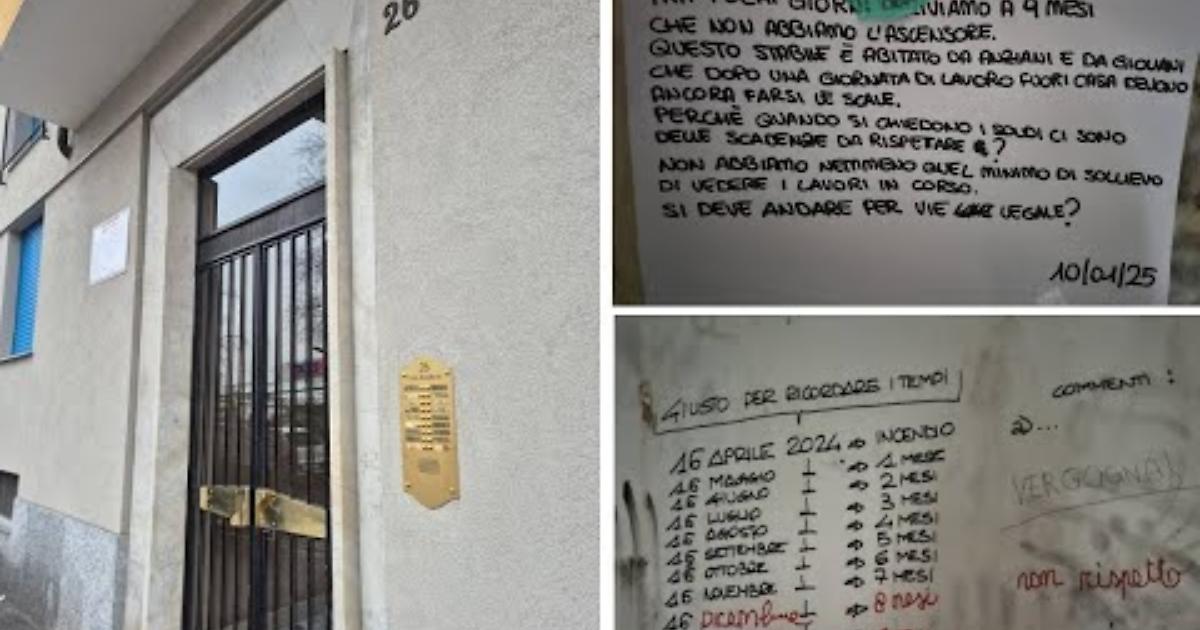 26
26
CHE NON ABBIAMO L'ASCENSORE.
QUESTO STABILE È ABITATO DA ANZIANI E DA GIOVANI
CHE DOPO UNA GIORNATA DI LAVORO FUORI CASA DEVONO
ANCORA FARSI LE SCALE.
PERCHÈ QUANDO SI CHIEDONO I SOLDI CI SONO
DELLE SCADENZE DA RISPETTARE ?
NON ABBIAMO NEMMENO QUEL MINIMO DI SOLLIEVO
DI VEDERE I LAVORI IN CORSO.
SI DEVE ANDARE PER VIE LEGALE?
10/01/25
GIUSTO PER RICORDARE I TEMPI
16 APRILE 2024 => INCENDIO
16 MAGGIO => 1 MESE
16 GIUGNO => 2 MESI
16 LUGLIO => 3 MESI
16 AGOSTO => 4 MESI
16 SETTEMBRE => 5 MESI
16 OTTOBRE => 6 MESI
16 NOVEMBRE => 7 MESI
16 Dicembre => 8 mesi
COMMENTI :
VERGOGNA!
non rispetto